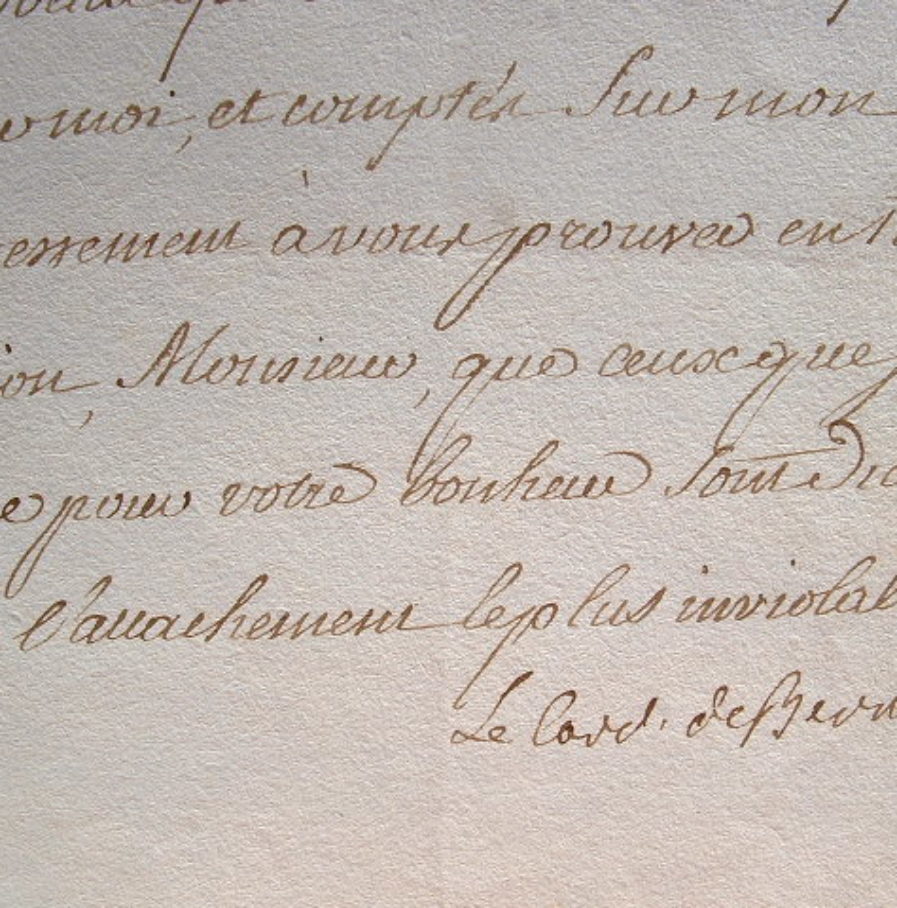 moi, et comptés sur mon
essement à vous prouver en
ion, Monsieur, que ceux que
e pour votre bonheur sont
l'attachement le plus inviolabl
Le Card. de Bern